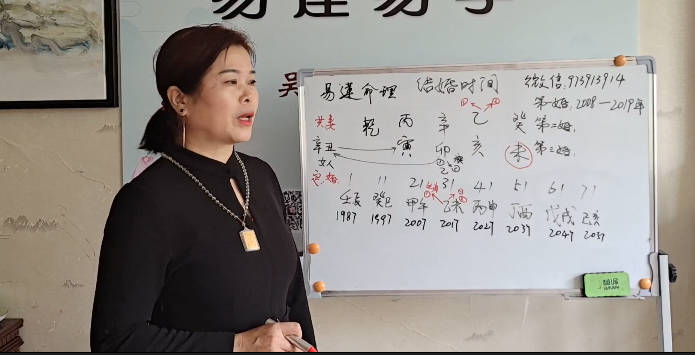 易逹易学
吴
易逹命理 结婚时间 微信:913913914
第一婚,2008—2019年
夫妻 乾 丙 辛 乙 癸 第二婚,
辛丑 寅 卯 亥 未 第三婚,
女人
1 11 21 31 41 51 61 71
壬辰 癸巳 甲午 乙未 丙申 丁酉 戊戌 己亥
1987 1997 2007 2017 2027 2037 2047 2057